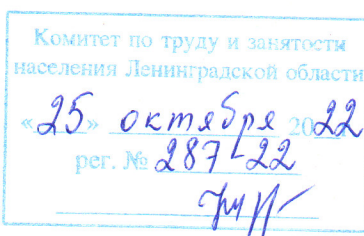 Комитет по труду и занятости
населения Ленинградской области
«25» октября 2022
рег. № 287-22